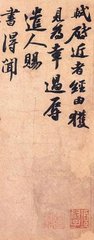 軾啟近者經由獲
見為幸過辱
遣人賜
書得聞